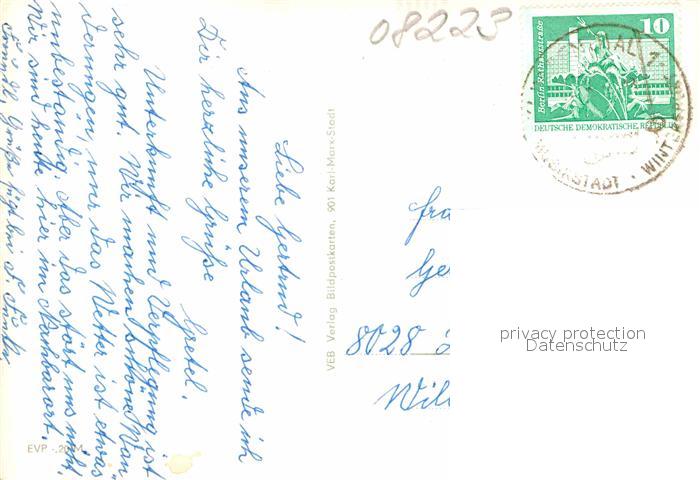 08223
10
Berlin Rathausstraße
DEUTSCHE DEMOKRATISCHE REPUBLIK
MUSIKSTADT · WINTER
Liebe Gertrud!
Aus unserem Urlaub sende ich
Dir herzliche Grüße
Gretel.
Unterkunft und Verpflegung ist
sehr gut. Wir machen schöne Wan-
derungen, nur das Wetter ist etwas
unbeständig. Aber das stört uns nicht.
Wir sind heute hier im Nachbarort.
Grüße
VEB Verlag Bildpostkarten, 901 Karl-Marx-Stadt
EVP -.20 M
fra
Ge
8028
Wil
privacy protection
Datenschutz